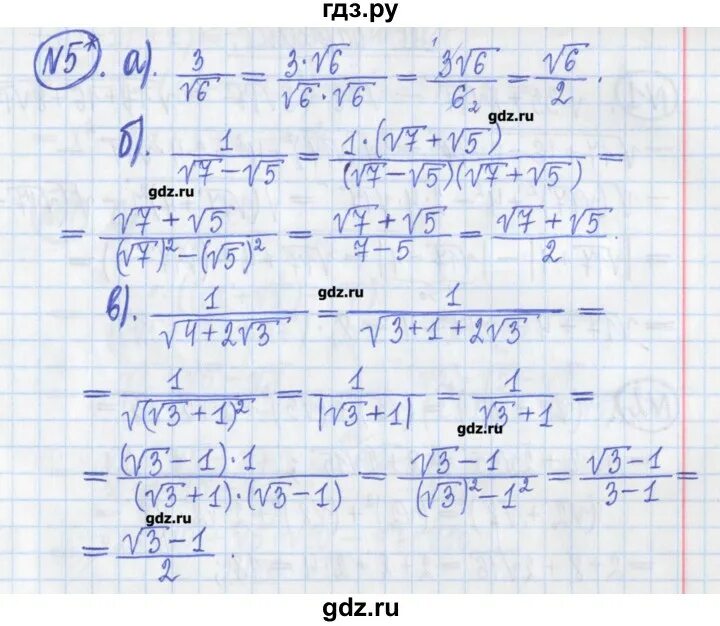 гдз.ру
№5*. а). 3/√6 = 3·√6/√6·√6 = 3√6/6 2 = √6/2.
gdz.ru
б). 1/√7−√5 = 1·(√7+√5)/(√7−√5)(√7+√5) =
gdz.ru
= √7+√5/(√7)²−(√5)² = √7+√5/7−5 = √7+√5/2.
gdz.ru
в). 1/√4+2√3 = 1/√3+1+2√3 =
= 1/√(√3+1)² = 1/|√3+1| = 1/√3+1 =
gdz.ru
= (√3−1)·1/(√3+1)·(√3−1) = √3−1/(√3)²−1² = √3−1/3−1 =
gdz.ru
= √3−1/2.
gdz.ru